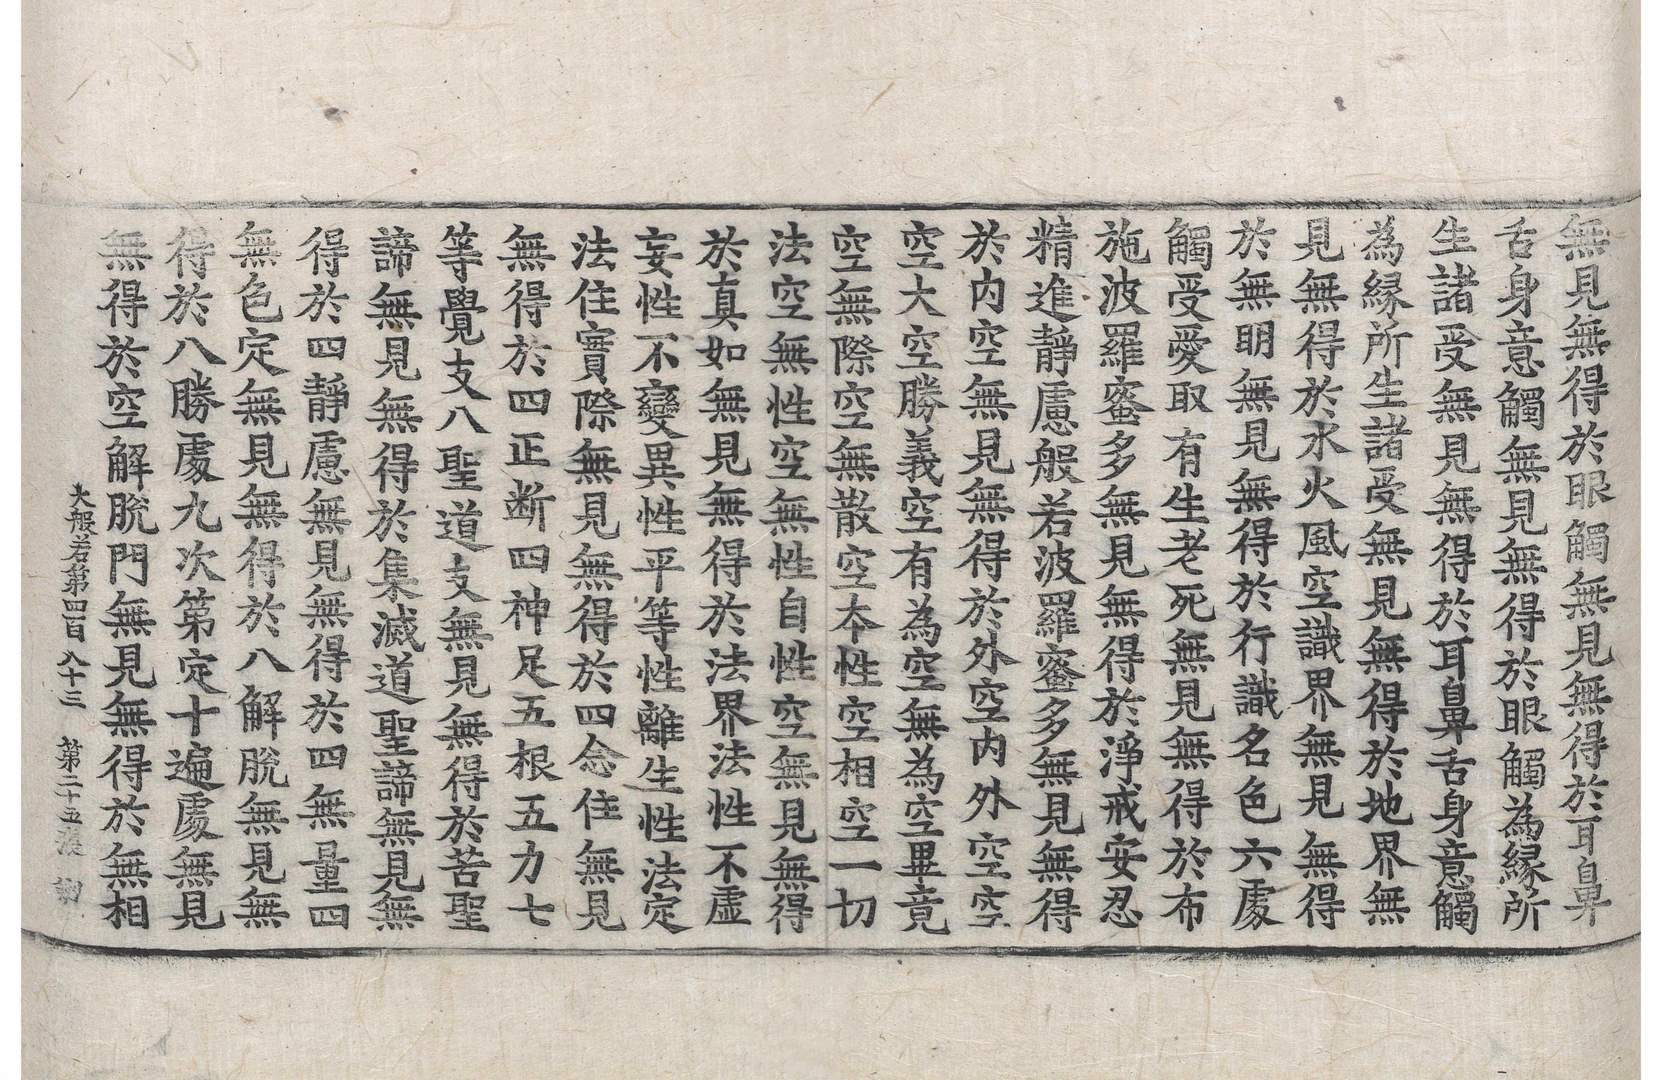 無見無得於眼觸無見無得於耳鼻
舌身意觸無見無得於眼觸為縁所
生諸受無見無得於耳鼻舌身意觸
為縁所生諸受無見無得於地界無
見無得於水火風空識界無見無得
於無明無見無得於行識名色六處
觸受愛取有生老死無見無得於布
施波羅蜜多無見無得於淨戒安忍
精進靜慮般若波羅蜜多無見無得
於内空無見無得於外空内外空空
空大空勝義空有為空無為空畢竟
空無際空無散空本性空相空一切
法空無性空無性自性空無見無得
於真如無見無得於法界法性不虛
妄性不變異性平等性離生性法定
法住實際無見無得於四念住無見
無得於四正断四神足五根五力七
等覺支八聖道支無見無得於苦聖
諦無見無得於集滅道聖諦無見無
得於四靜慮無見無得於四無量四
無色定無見無得於八解脫無見無
得於八勝處九次第定十遍處無見
無得於空解脫門無見無得於無相
大般若第四百八十三 第二十五張